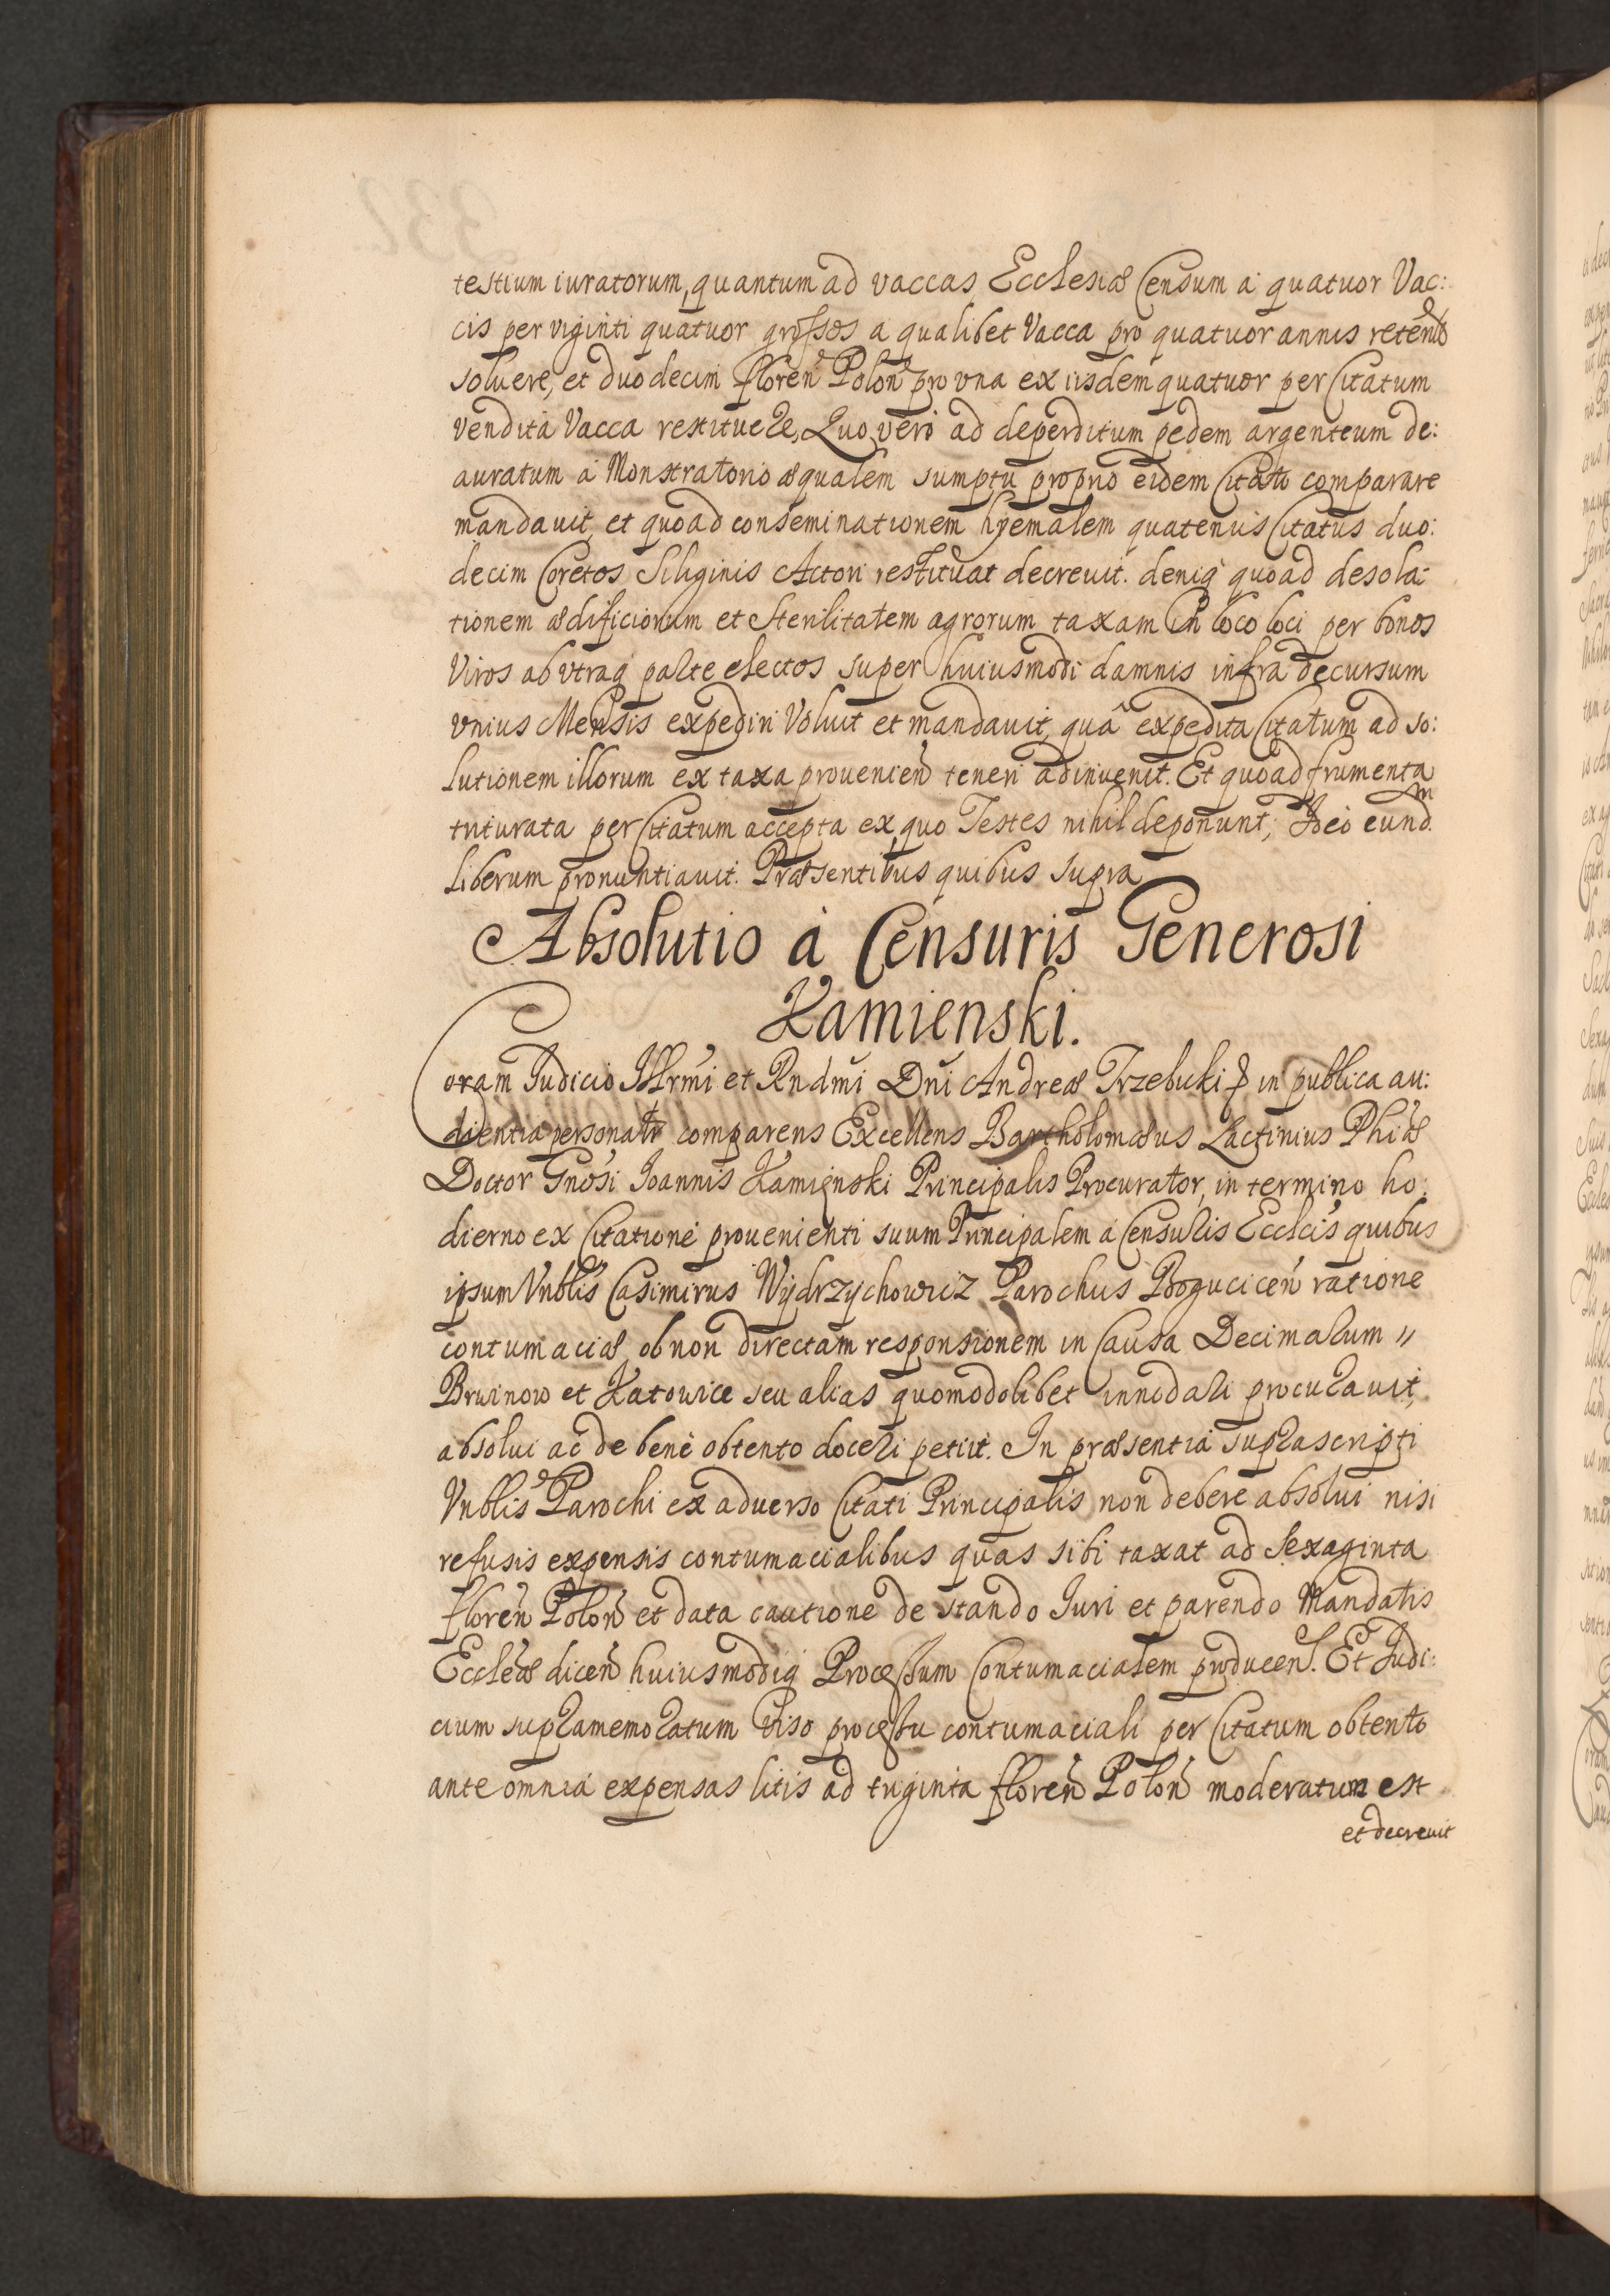 testium iuratorum, quantum ad vaccas Ecclesiæ Censum a quatuor Vac:
cis per viginti quatuor grossos a qualibet Vacca pro quatuor annis retent
soluere, et duodecim floren Polon pro vna ex iisdem quatuor per Citatum
vendita Vacca restituere, Quo vero ad deperditum pedem argenteum de:
auratum a Monstratorio æqualem sumptu proprio eidem Citato comparare
mandauit, et quoad conseminationem hyemalem quatenus Citatus duo:
decim Coretos Siliginis Actori restituat decreuit. deniq quoad desola:
tionem ædificiorum et Sterilitatem agrorum taxam in loco loci per bonos
Viros ab vtraq parte electos super huiusmodi damnis infra decursum
vnius Mensis expediri Voluit et mandauit, quâ expedita Citatum ad so:
lutionem illorum ex taxa prouenien teneri adinuenit. Et quoad frumenta
triturata per Citatum accepta ex quo Testes nihil deponunt, Ideo eundm
liberum pronuntiauit. Præsentibus quibus supra
Absolutio à Censuris Generosi
Kamienski.
Coram Iudicio Illrmi et Rndmi Dni Andreæ Trzebicki in publica au:
dientia personalr comparens Excellens Bartholomæus Lactinius Phiæ
Doctor Gnosi Ioannis Kamienski Principalis Procurator, in termino ho:
dierno ex Citatione prouenienti suum Principalem a Censuris Ecclcis quibus
ipsum Vnblis Casimirus Wydrzychowicz Parochus Bogucicen ratione
contumaciæ ob non directam responsionem in Causa Decimarum //
Brwinow et Katowice seu alias quomodolibet innodari procurauit,
absolui ac de bene obtento doceri petiit. In præsentia suprascripti
Vnblis Parochi ex aduerso Citati Principalis non debere absolui nisi
refusis expensis contumacialibus quas sibi taxat ad Sexaginta
floren Polon et data cautione de stando Iuri et parendo Mandatis
Eccleæ dicen huiusmodiq Processum Contumacialem producen. Et Iudi:
cium supramemoratum Viso processu contumaciali per Citatum obtento
ante omnia expensas litis ad triginta floren Polon moderatum est
et decreuit